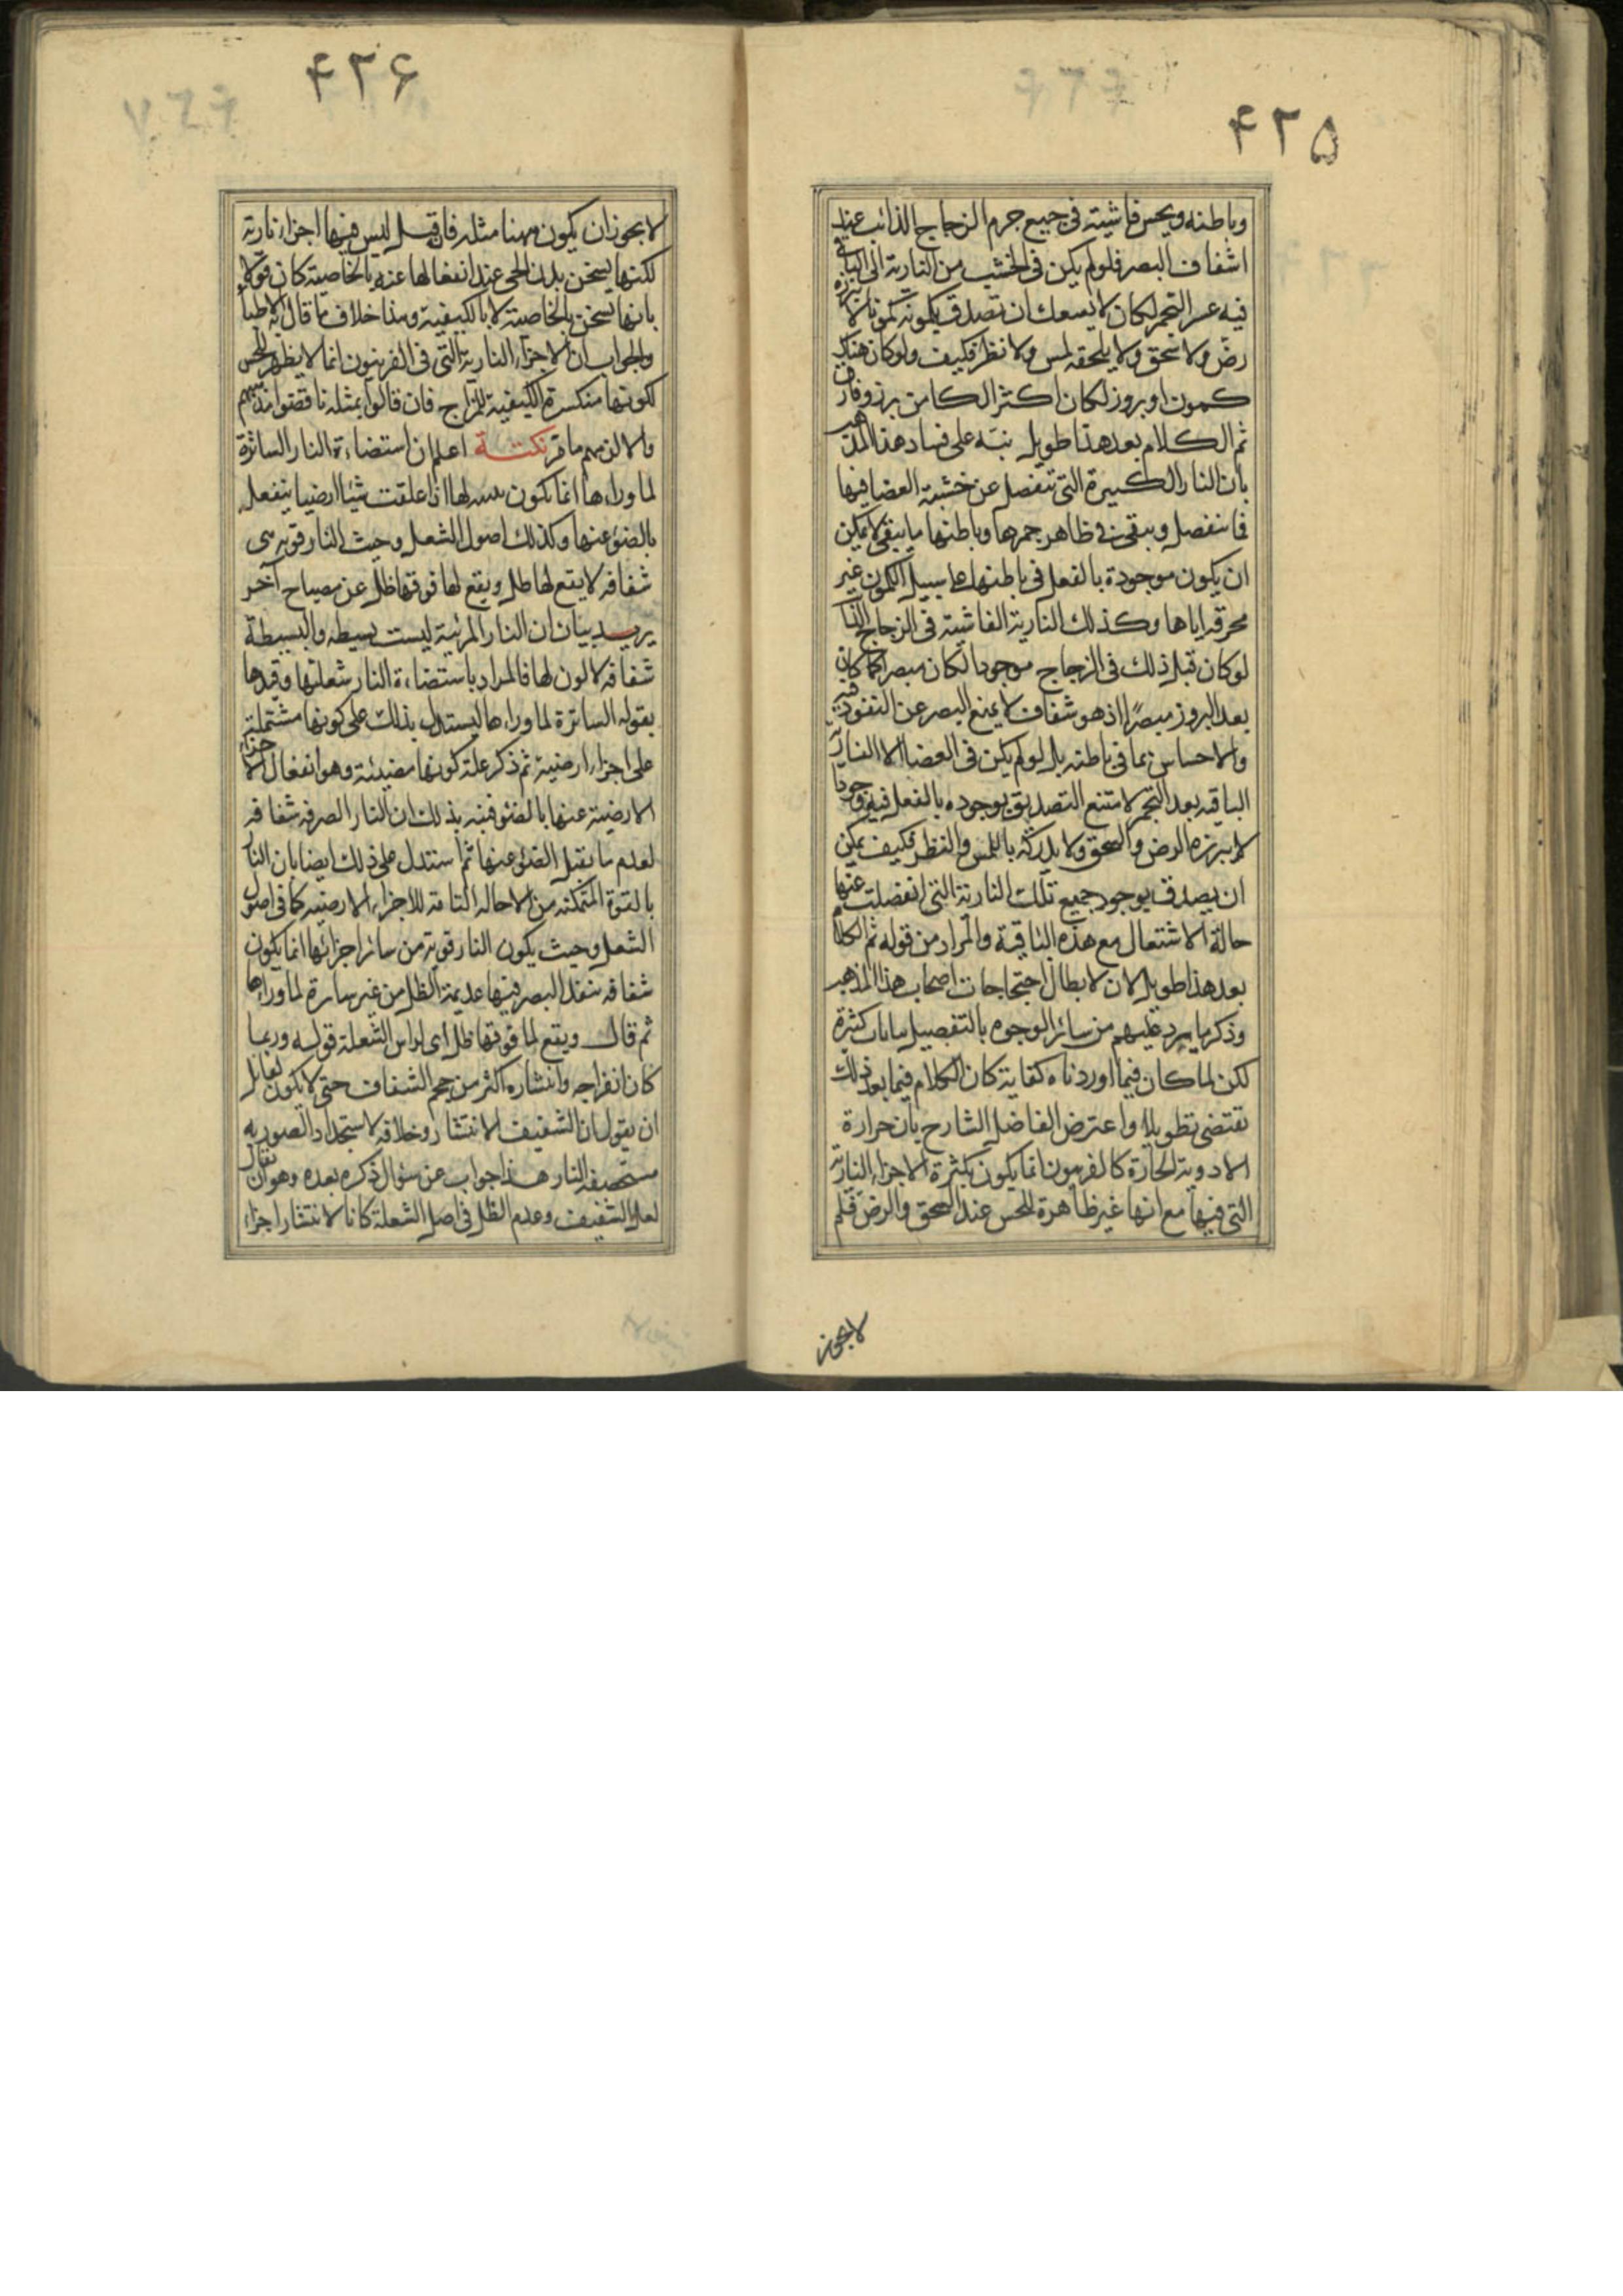 ۴۲۵
وباطنه ويحس فاشيته في جميع جرم الزجاج الذائب عند
اشفاف البصر فلو لم يكن في الخشب من النارية الا الباقي
فيه عسر التجمر لكان لا يسعك ان تصدق بكمونه كمونا لا يبرزه
رض ولا سحق ولا يلحقه لمس ولا نظر فكيف ولو كان هناك
كمون او بروز لكان اكثر الكامن برز وفارق
ثم الكلام بعد هذا طويل نبّه على فساد هذا المذهب
بان النار الكبيرة التي تنفصل عن خشبة الغضا فيها
فما ينفصل ويبقى في ظاهر جمرها وباطنها ما يبقى لا يمكن
ان يكون موجودة بالفعل في باطنها على سبيل الكمون غير
محرقه اياها وكذلك النارية الفاشية في الزجاج الذائب
لو كان قبل ذلك في الزجاج موجودا لكان مبصرا كما كان
بعد البروز مبصرًا اذ هو شفاف لا يمنع البصر عن النفوذ فيه
والاحساس بما في باطنه بل لو لم يكن في الغضا الا النارية
الباقيه بعد التجمر لامتنع التصديق بوجوده بالفعل فيه وجودا
لا يبرزه الرض والسحق ولا يدركه باللمس والنظر فكيف يمكن
ان يصدق بوجود جميع تلك النارية التي انفصلت عنها
حالة الاشتعال مع هذه الباقية والمراد من قوله ثم الكلام
بعد هذا طويل لان لابطال احتجاجات اصحاب هذا المذهب
وذكر ما يرد عليهم من سائر الوجوه بالتفصيل بيانات كثيرة
لكن لما كان فيما اوردناه كفاية كان الكلام فيما بعد ذلك
يقتضى تطويلا واعترض الفاضل الشارح بان حرارة
الادوية الحارة كالفربيون انما يكون بكثرة الاجزاء النارية
التي فيها مع انها غير ظاهرة للحس عند السحق والرض فلم
لا يجوز
۴۲۶
لا يجوز ان يكون ههنا مثله فان قيل ليس فيها اجزاء نارية
لكنها يسخن بدن الحي عند انفعالها عنه بالخاصية كان قولا
بانها يسخن بالخاصية لا بالكيفية وهذا خلاف ما قال الاطباء
والجواب ان الاجزاء النارية التي في الفربيون انما لا يظهر للحس
لكونها منكسرة الكيفية للمزاج فان قالوا بمثله ناقضوا مذهبهم
والا لزمهم ما مر نكتــة اعلم ان استضاءة النار الساترة
لما وراءها انما يكون لها اذا علقت شيئا ارضيا ينفعل
بالضوء عنها وكذلك اصول الشعل وحيث النار قوية هى
شفافه لا يقع لها ظل ويقع لما فوقها ظل عن مصباح آخر
يريد بيان ان النار المرئية ليست بسيطه والبسيطة
شفافه لا لون لها فالمراد باستضاءة النار شعلتها وقيدها
بقوله الساترة لما وراءها ليستدل بذلك على كونها مشتملة
على اجزاء ارضية ثم ذكر علة كونها مضيئة وهو انفعال الاجزاء
الارضية عنها بالضوء فنبه بذلك ان النار الصرفه شفافه
لعدم ما يقبل الضوء عنها ثم استدل على ذلك ايضا بان النار
بالقوة المتمكنه من الاحاله التامة للاجزاء الارضيه كما في اصول
الشعل وحيث يكون النار قوية من سائر اجزائها انما يكون
شفافه ينفذ البصر فيها عديمة الظل من غير ساترة لما وراءها
ثم قال ويقع لما فوقها ظل اى لراس الشعلة قوله وربما
كان انفراجه وانتشاره اكثر من حجم الشفاف حتى لا يكون لقائل
ان يقول ان الشفيف للانتشار وخلافه لاستحداد الصنوبرية
مستحصفه النار هذا جواب عن سؤال ذكره بعده وهو ان يقال
لعل الشفيف وعدم الظل في اصل الشعلة كانا لانتشار اجزاء